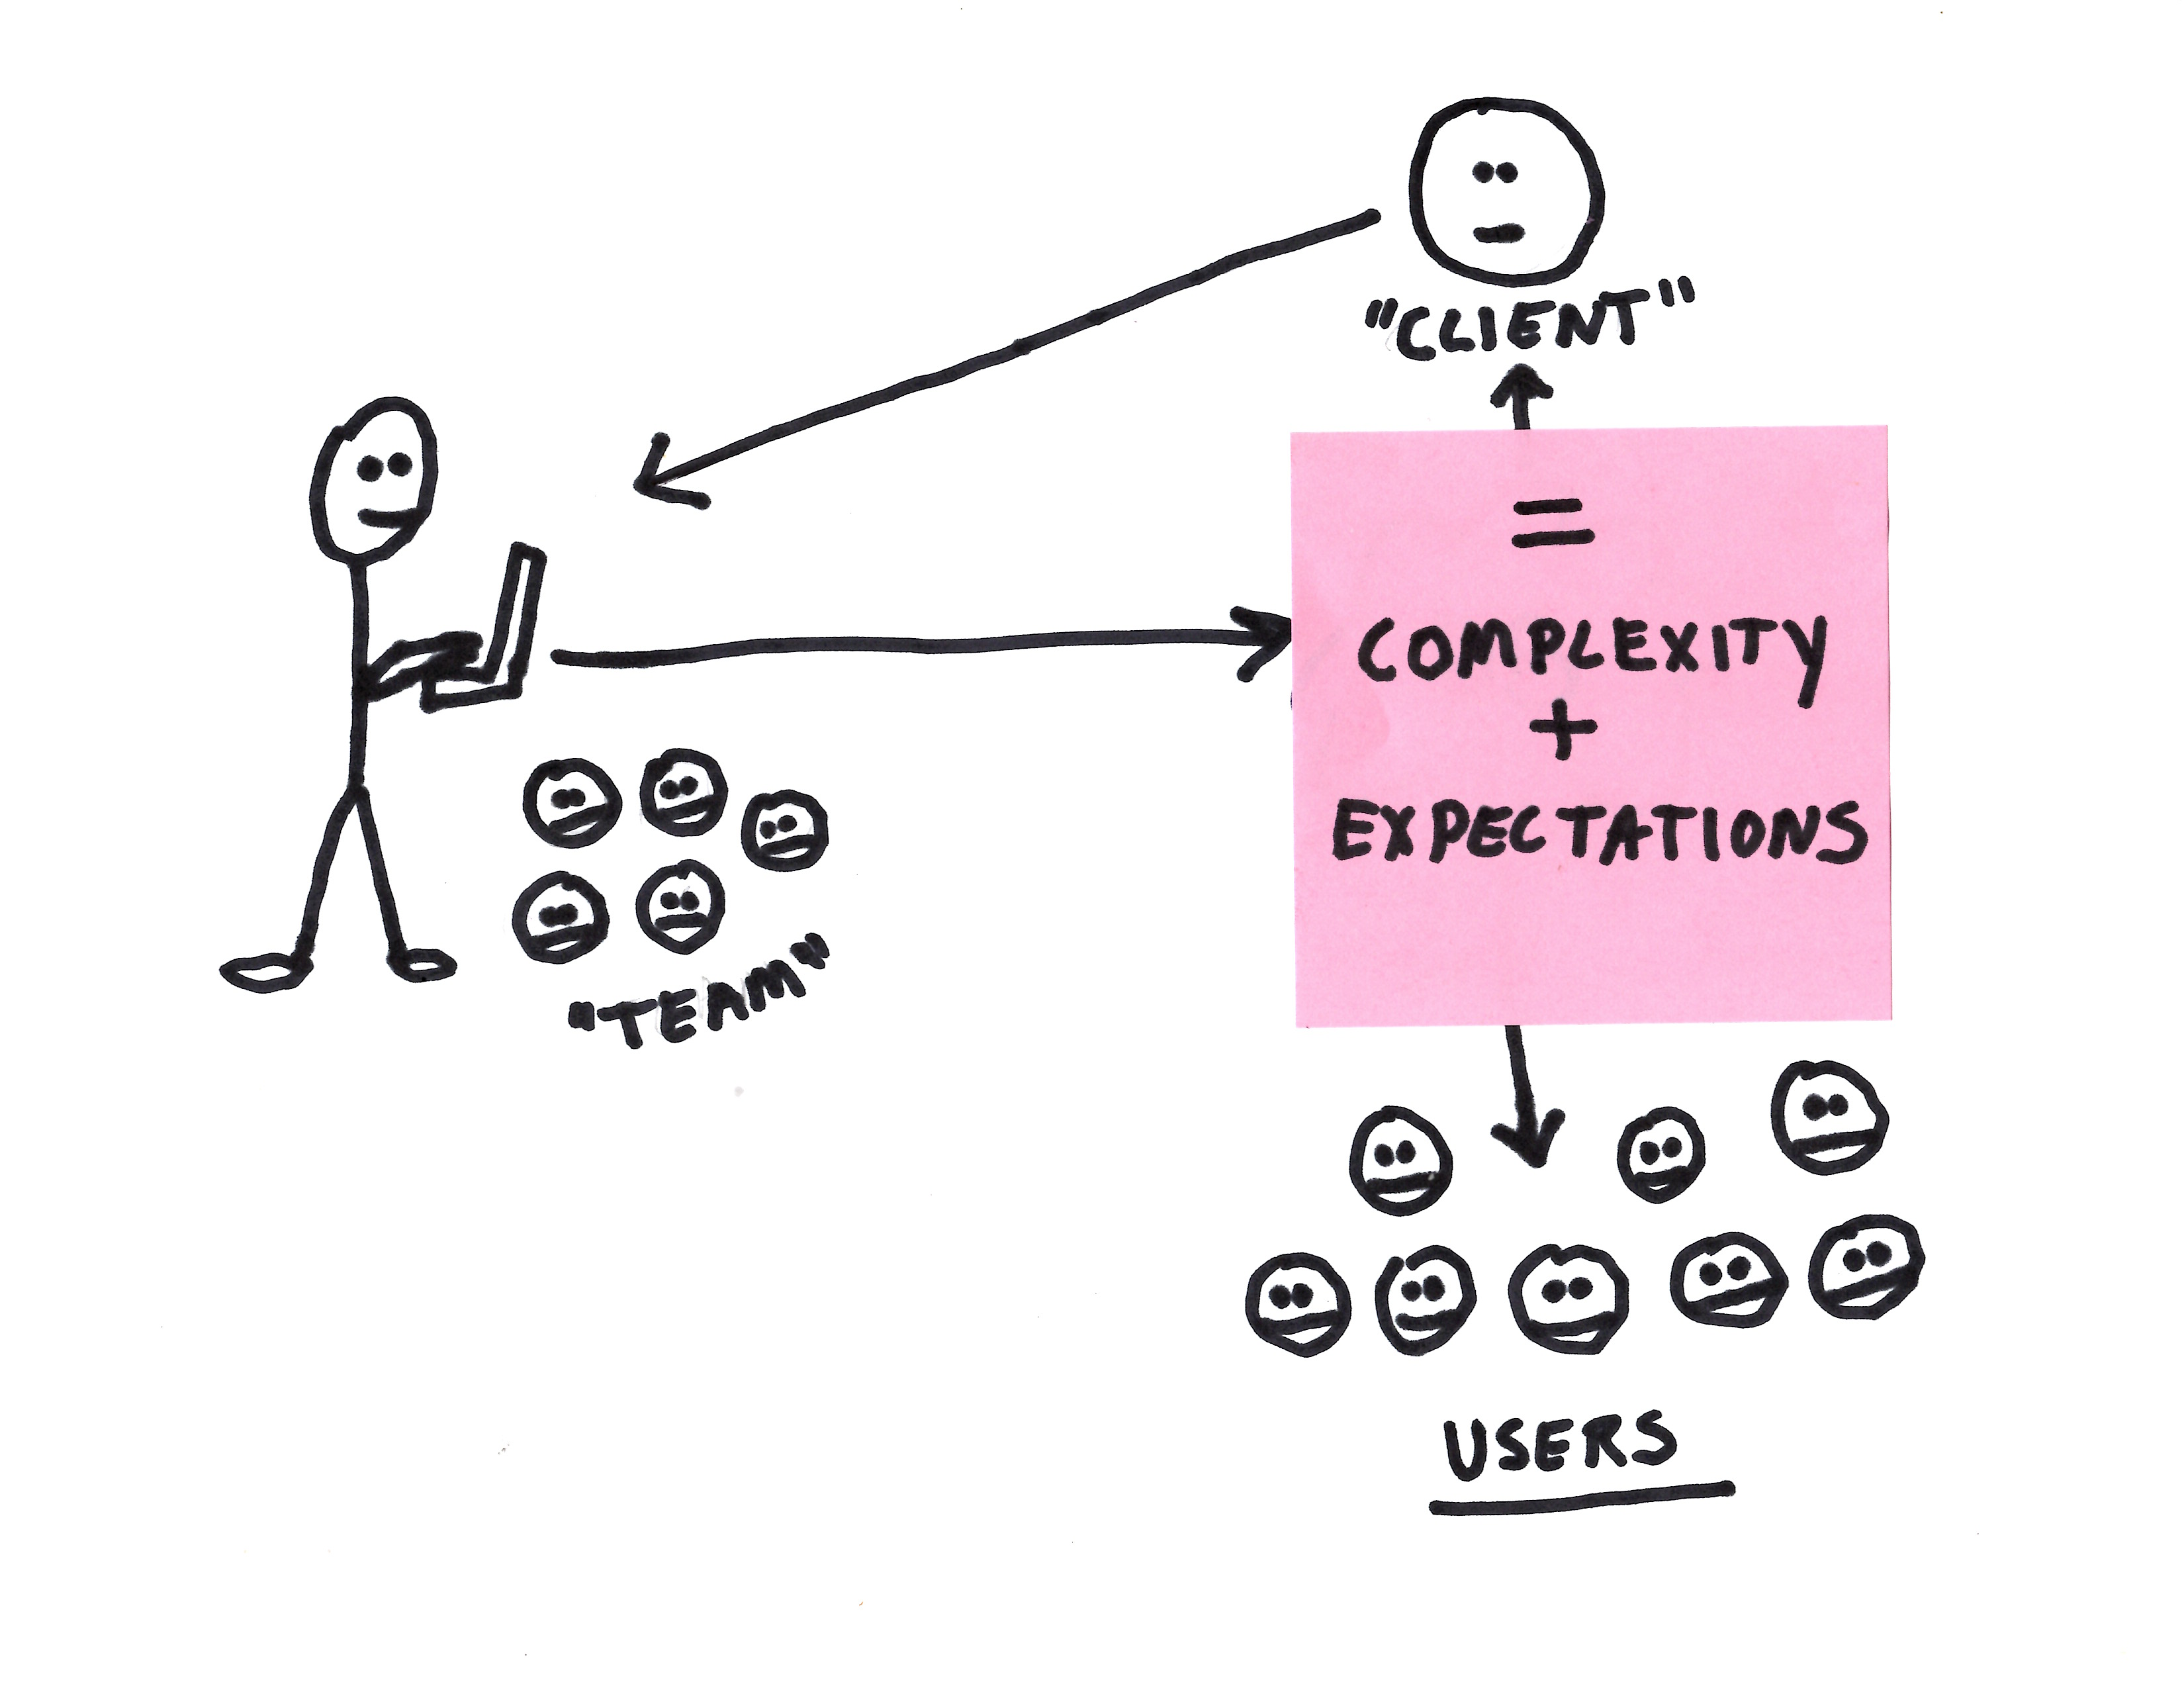 "CLIENT"
=
COMPLEXITY
+
EXPECTATIONS
"TEAM"
USERS